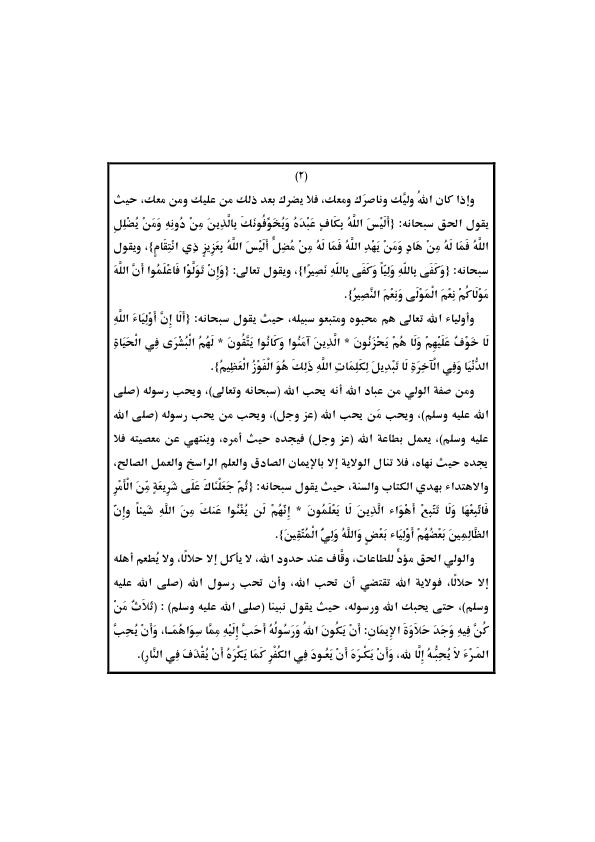 (٢)
وإذا كان اللهُ وليَّك وناصرَك ومعك، فلا يضرك بعد ذلك من عليك ومن معك، حيث
يقول الحق سبحانه: {أَلَيْسَ اللَّهُ بِكَافٍ عَبْدَهُ وَيُخَوِّفُونَكَ بِالَّذِينَ مِنْ دُونِهِ وَمَنْ يُضْلِلِ
اللَّهُ فَمَا لَهُ مِنْ هَادٍ وَمَنْ يَهْدِ اللَّهُ فَمَا لَهُ مِنْ مُضِلٍّ أَلَيْسَ اللَّهُ بِعَزِيزٍ ذِي انْتِقَامٍ}، ويقول
سبحانه: {وَكَفَى بِاللَّهِ وَلِيّاً وَكَفَى بِاللَّهِ نَصِيرًا}، ويقول تعالى: {وَإِنْ تَوَلَّوْا فَاعْلَمُوا أَنَّ اللَّهَ
مَوْلَاكُمْ نِعْمَ الْمَوْلَى وَنِعْمَ النَّصِيرُ}.
وأولياء الله تعالى هم محبوه ومتبعو سبيله، حيث يقول سبحانه: {أَلَا إِنَّ أَوْلِيَاءَ اللَّهِ
لَا خَوْفٌ عَلَيْهِمْ وَلَا هُمْ يَحْزَنُونَ * الَّذِينَ آمَنُوا وَكَانُوا يَتَّقُونَ * لَهُمُ الْبُشْرَى فِي الْحَيَاةِ
الدُّنْيَا وَفِي الْآخِرَةِ لَا تَبْدِيلَ لِكَلِمَاتِ اللَّهِ ذَلِكَ هُوَ الْفَوْزُ الْعَظِيمُ}.
ومن صفة الولي من عباد الله أنه يحب الله (سبحانه وتعالى)، ويحب رسوله (صلى
الله عليه وسلم)، ويحب مَن يحب الله (عز وجل)، ويحب من يحب رسوله (صلى الله
عليه وسلم)، يعمل بطاعة الله (عز وجل) فيجده حيث أمره، وينتهي عن معصيته فلا
يجده حيث نهاه، فلا تنال الولاية إلا بالإيمان الصادق والعلم الراسخ والعمل الصالح،
والاهتداء بهدي الكتاب والسنة، حيث يقول سبحانه: {ثُمَّ جَعَلْنَاكَ عَلَى شَرِيعَةٍ مِّنَ الْأَمْرِ
فَاتَّبِعْهَا وَلَا تَتَّبِعْ أَهْوَاء الَّذِينَ لَا يَعْلَمُونَ * إِنَّهُمْ لَن يُغْنُوا عَنكَ مِنَ اللَّهِ شَيئاً وإِنَّ
الظَّالِمِينَ بَعْضُهُمْ أَوْلِيَاء بَعْضٍ وَاللَّهُ وَلِيُّ الْمُتَّقِينَ}.
والولي الحق مؤدٍّ للطاعات، وقَّاف عند حدود الله، لا يأكل إلا حلالًا، ولا يُطعم أهله
إلا حلالًا، فولاية الله تقتضي أن تحب الله، وأن تحب رسول الله (صلى الله عليه
وسلم)، حتى يحبك الله ورسوله، حيث يقول نبينا (صلى الله عليه وسلم) : (ثَلَاثٌ مَنْ
كُنَّ فِيهِ وَجَدَ حَلَاوَةَ الإِيمَانِ: أَنْ يَكُونَ اللهُ وَرَسُولُهُ أَحَبَّ إِلَيْهِ مِمَّا سِوَاهُمَـا، وَأَنْ يُحِبَّ
المَرْءَ لاَ يُحِبُّهُ إِلَّا لله، وَأَنْ يَكْـرَهَ أَنْ يَعُـودَ فِي الكُفْرِ كَمَا يَكْرَهُ أَنْ يُقْذَفَ فِي النَّارِ).